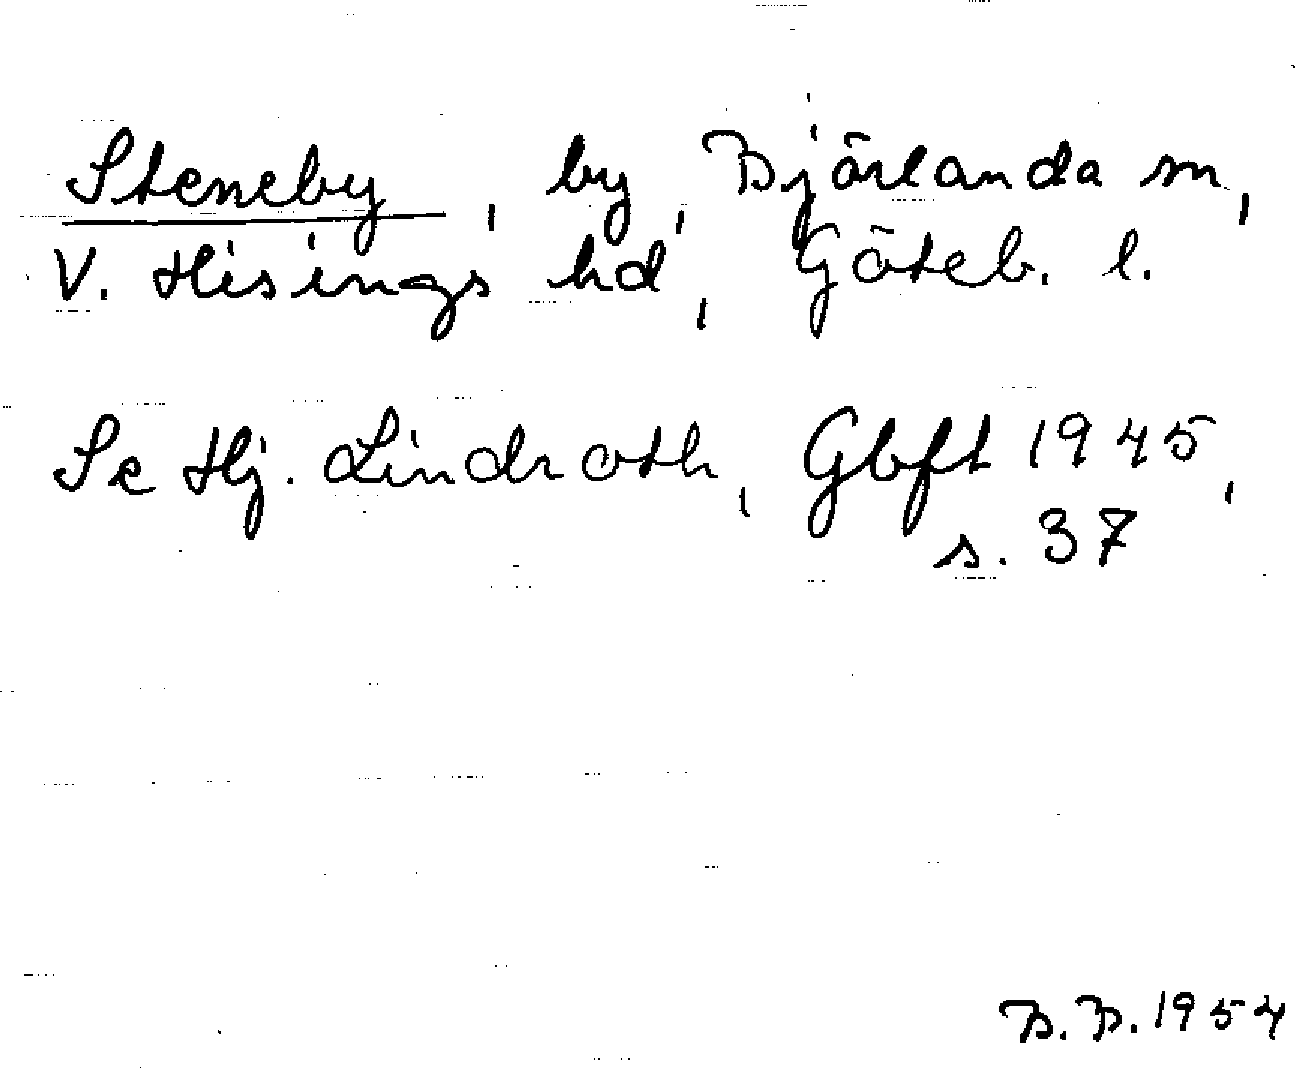 Steneby, by, Björlanda sn,
V. Hisings hd, Göteb. l.
Se Hj. Lindroth, Gbft 1945,
s. 37
B. B. 1954